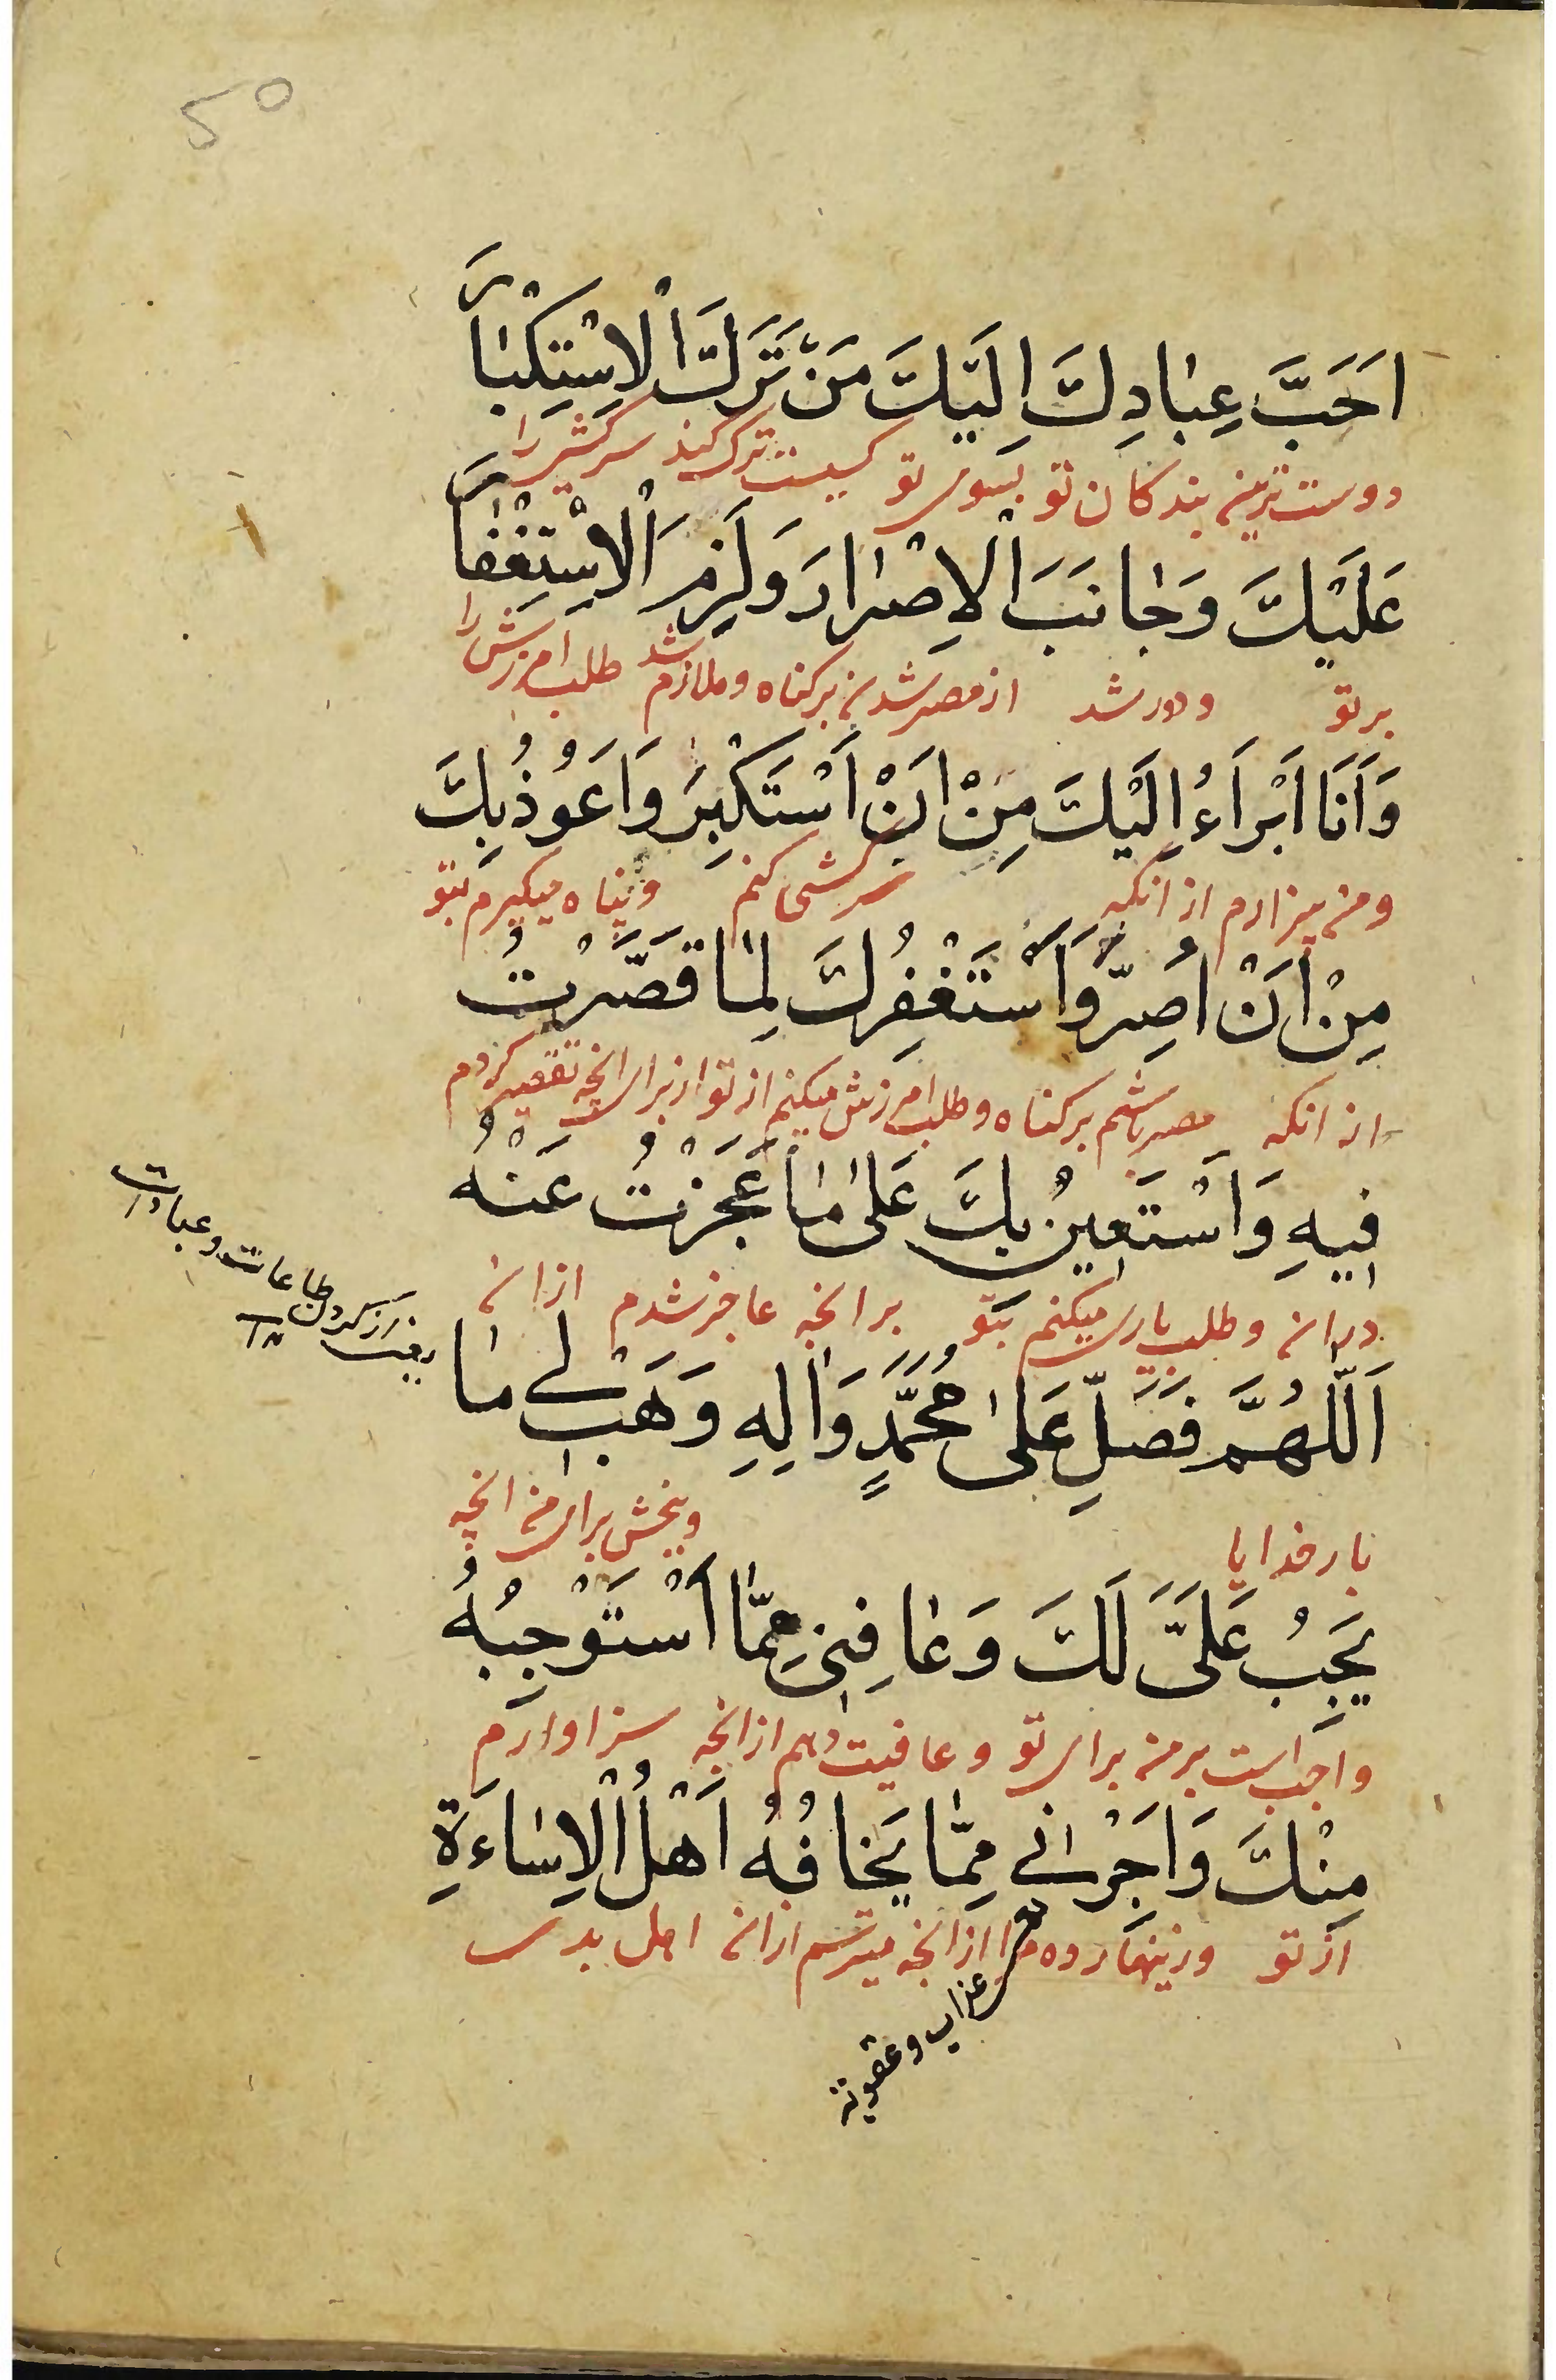 ۵۰
اَحَبَّ عِبٰادِكَ اِلَيْكَ مَنْ تَرَكَ الْاِسْتِكْبٰارَ
دوست ترین بندکان تو بسوی تو کسیست ترک کند سرکشی را
عَلَيْكَ وَجٰانَبَ الْاِصْرٰارَ وَلَزِمَ الْاِسْتِغْفٰارَ
بر تو ودور شد از مصر شدن بر کناه وملازم شد طلب امرزش را
وَاَنَا اَبْرَاءُ اِلَيْكَ مِنْ اَنْ اَسْتَكْبِرَ وَاَعُوْذُ بِكَ
ومن بیزارم از انکه سرکشی کنم وپناه میکیرم بتو
مِنْ اَنْ اُصِرَّ وَاَسْتَغْفِرُكَ لِمٰا قَصَّرْتُ
از انکه مصر باشم بر کناه وطلب امرزش میکنم از تو از برای انچه تقصیر کردم
فِيهِ وَاَسْتَعِينُ بِكَ عَلىٰ مٰا عَجَزْتُ عَنْهُ
در ان وطلب یاری میکنم بتو بر انچه عاجز شدم از ان
اَللّٰهُمَّ فَصَلِّ عَلىٰ مُحَمَّدٍ وَاٰلِهِ وَهَبْ لِي مٰا
بار خدایا وببخش برای من انچه
يَجِبُ عَلَيَّ لَكَ وَعٰافِنِي مِمّٰا اَسْتَوْجِبُهُ
واجب است بر من برای تو وعافیت دهم از انچه سزاوارم
مِنْكَ وَاَجِرْنِي مِمّٰا يَخٰافُهُ اَهْلُ الْاِسٰاءَةِ
از تو وزینهار ده مرا از انچه میترسم از ان اهل بدی
کردن طاعات وعبادات
عذاب وعقوبة